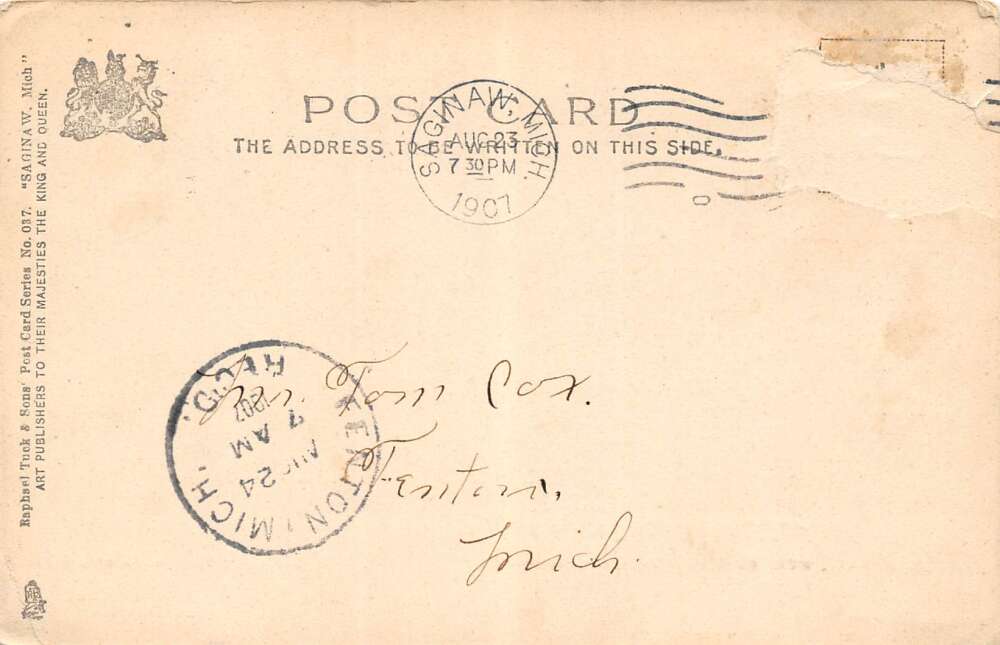 POST CARD
THE ADDRESS TO BE WRITTEN ON THIS SIDE.
SAGINAW, MICH.
AUG 23
7 30 PM
1907
Raphael Tuck & Sons' Post Card Series No. 037. "SAGINAW, Mich"
ART PUBLISHERS TO THEIR MAJESTIES THE KING AND QUEEN.
FENTON, MICH.
AUG 24
7 AM
1907
REC'D.
Mr. Tom Cox.
Fenton,
Mich.